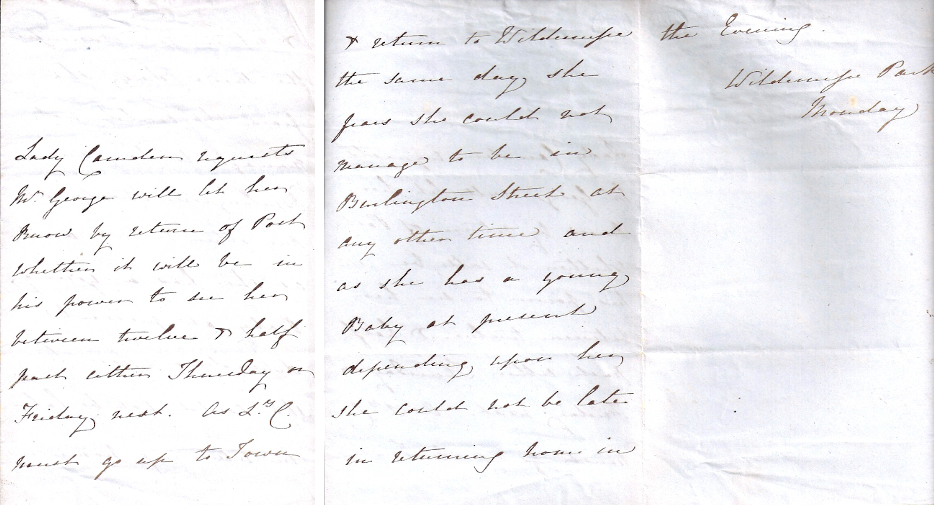 Lady Camden requests
Mr. George will let her
know by return of Post
whether it will be in
his power to see her
between twelve & half
past either Thursday or
Friday next. As Ly. C
must go up to Town
& return to Wildernesse
the same day she
fears she could not
manage to be in
Burlington Street at
any other time and
as she has a young
Baby at present
depending upon her
she could not be later
in returning home in
the Evening.
Wildernesse Park
Monday